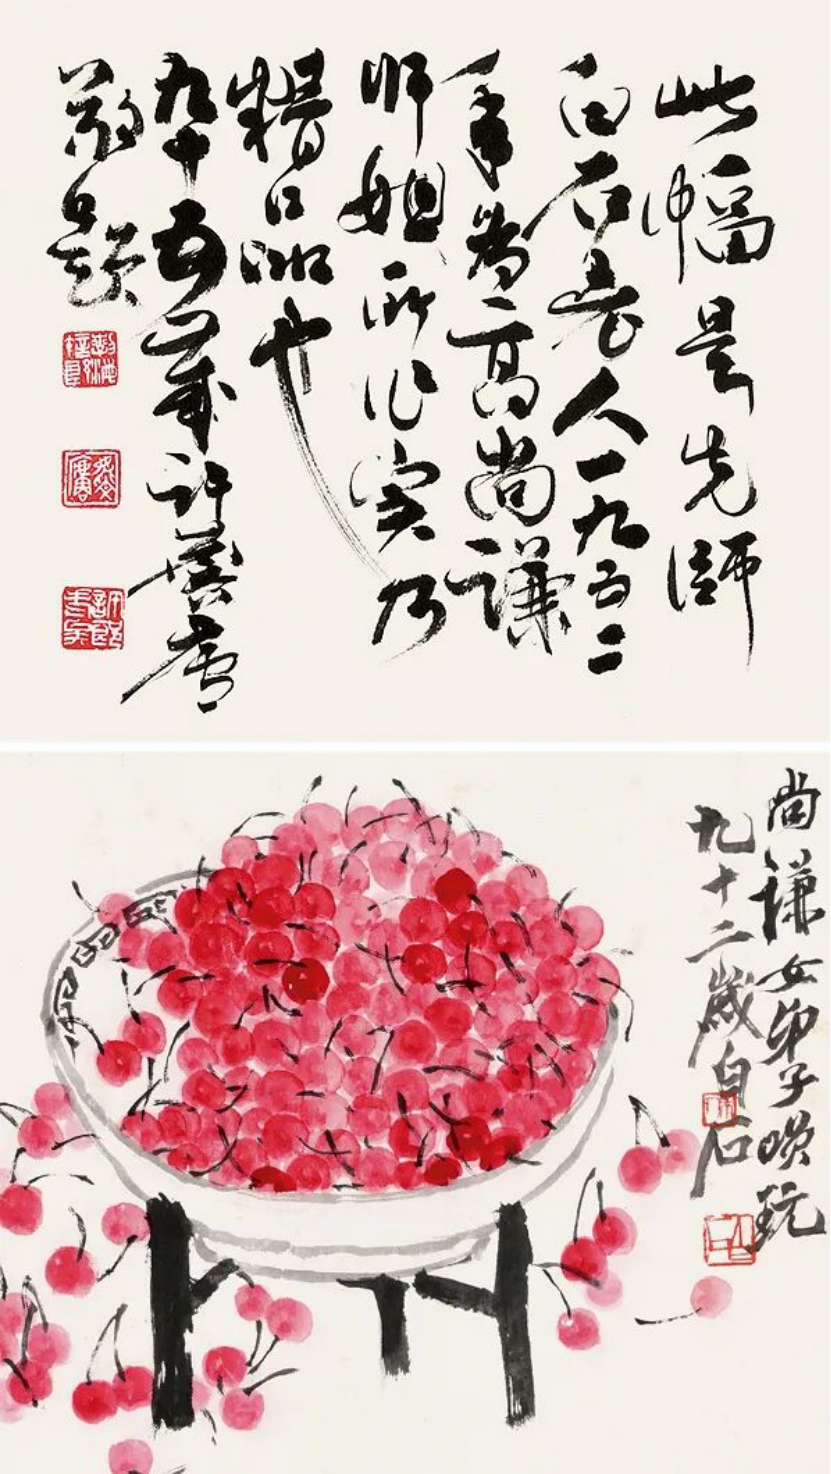 此幅是先師
白石老人一九五二
年为高尚谦
师姐所作实乃
精品也
九十五岁许麐庐
敬题
尚谦女弟子玩
九十二歲白石